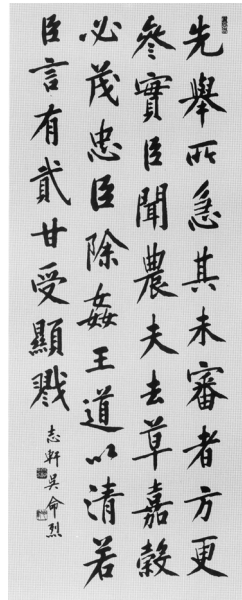 先舉所急其未審者方更
參實臣聞農夫去草嘉穀
必茂忠臣除姦王道以清若
臣言有貳甘受顯戮
志軒吳命烈